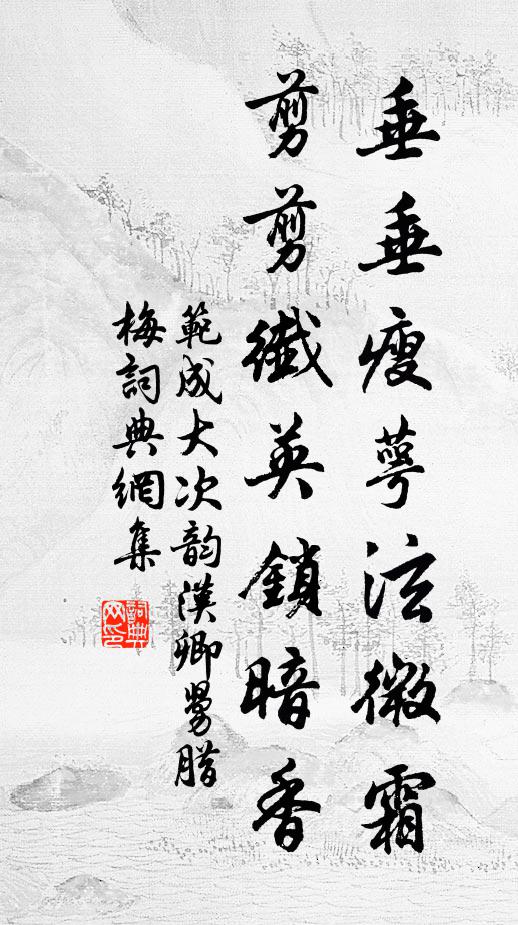 垂垂瘦萼泫微霜
剪剪纖英鎖暗香
範成大次韵漢卿舅腊
梅詞典網集
詞典網印